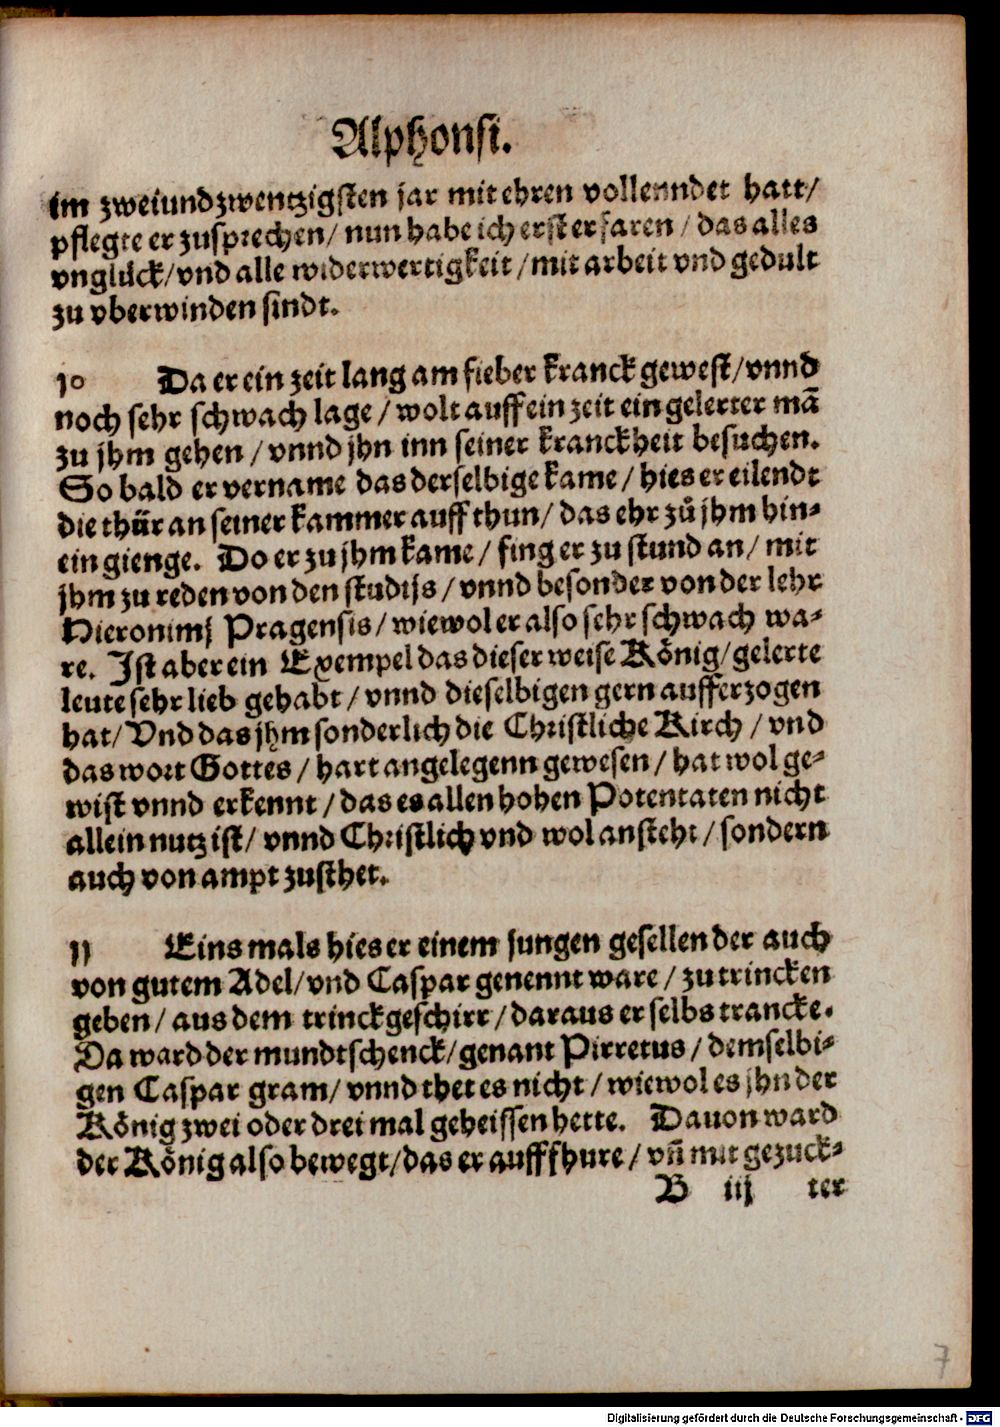 Alphonsi.
im zweiundzwentzigsten jar mit ehren vollenndet hatt/
pflegte er zusprechen/ nun habe ich erst erfaren / das alles
vnglück/vnd alle widerwertigkeit /mit arbeit vnd gedult
zu vberwinden sindt.
10 Da er ein zeit lang am fieber kranck gewest/vnnd
noch sehr schwach lage / wolt auff ein zeit ein gelerter mã
zu jhm gehen / vnnd jhn inn seiner kranckheit besuchen.
So bald er vername das derselbige kame / hies er eilendt
die thür an seiner kammer auff thun/ das ehr zů jhm hin-
ein gienge. Do er zu jhm kame / fing er zu stund an/ mit
jhm zu reden von den studijs / vnnd besonder von der lehr
Hieronimj Pragensis/ wiewol er also sehr schwach wa-
re. Ist aber ein Exempel das dieser weise König/gelerte
leute sehr lieb gehabt / vnnd dieselbigen gern aufferzogen
hat/ Vnd das jhm sonderlich die Christliche Kirch / vnd
das wort Gottes / hart angelegenn gewesen / hat wol ge-
wist vnnd erkennt / das es allen hohen Potentaten nicht
allein nutz ist/ vnnd Christlich vnd wol ansteht / sondern
auch von ampt zusthet.
11 Eins mals hies er einem jungen gesellen der auch
von gutem Adel/vnd Caspar genennt ware / zu trincken
geben/ aus dem trinckgeschirr/daraus er selbs trancke.
Da ward der mundtschenck/genant Pirretus/ demselbi-
gen Caspar gram/ vnnd thet es nicht / wiewol es jhn der
König zwei oder drei mal geheissen hette. Dauon ward
der König also bewegt/das er auff fhure / vñ mit gezuck-
B iij ter
7
Digitalisierung gefördert durch die Deutsche Forschungsgemeinschaft - DFG